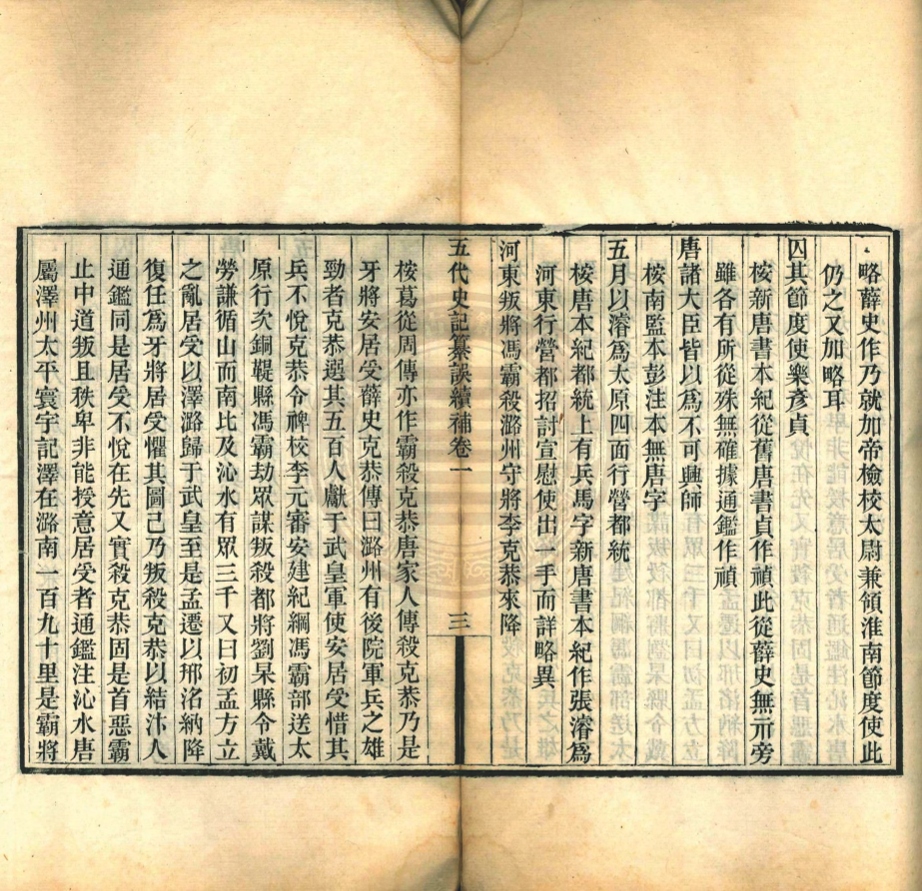 略薛史作乃就加帝檢校太尉兼領淮南節度使此
仍之又加略耳
囚其節度使樂彥貞
桉新唐書本紀從舊唐書貞作禎此從薛史無示旁
雖各有所從殊無確據通鑑作禎
唐諸大臣皆以爲不可興師
桉南監本彭注本無唐字
五月以濬爲太原四面行營都統
桉唐本紀都統上有兵馬字新唐書本紀作張濬爲
河東行營都招討宣慰使出一手而詳略異
河東叛將馮霸殺潞州守將李克恭來降
五代史記纂誤續補卷一
三
桉葛從周傳亦作霸殺克恭唐家人傳殺克恭乃是
牙將安居受薛史克恭傳曰潞州有後院軍兵之雄
勁者克恭選其五百人獻于武皇軍使安居受惜其
兵不悅克恭令裨校李元審安建紀綱馮霸部送太
原行次銅鞮縣馮霸劫眾謀叛殺都將劉杲縣令戴
勞謙循山而南比及沁水有眾三千又曰初孟方立
之亂居受以澤潞歸于武皇至是孟遷以邢洺納降
復任爲牙將居受懼其圖己乃叛殺克恭以結汴人
通鑑同是居受不悅在先又實殺克恭固是首惡霸
止中道叛且秩卑非能授意居受者通鑑注沁水唐
屬澤州太平寰宇記澤在潞南一百九十里是霸將